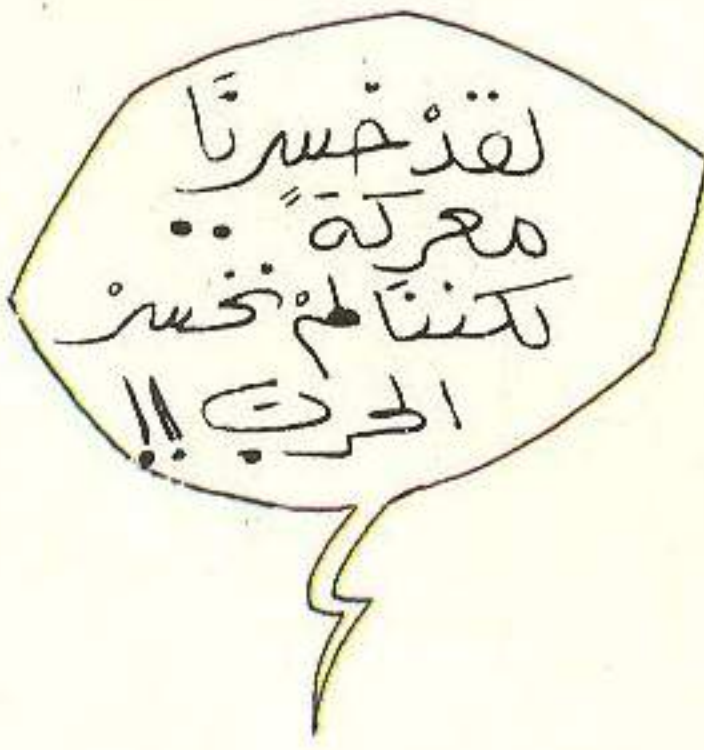 لقدْ خسرنَا
معركةً ..
لكننَا لمْ نخسرْ
الحربَ !!